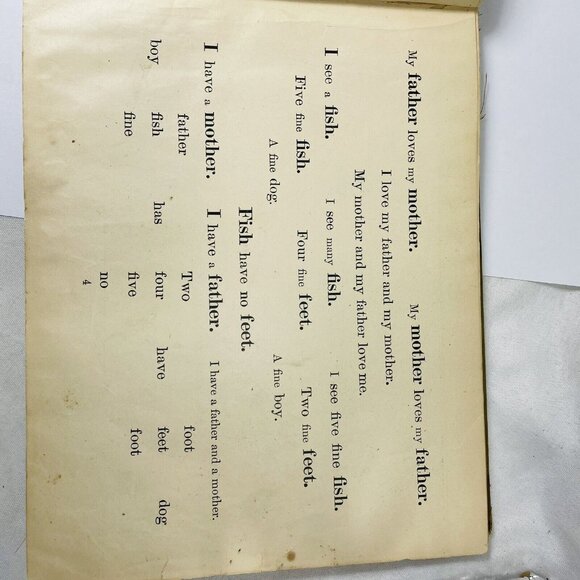 My father loves my mother. My mother loves my father.
I love my father and my mother.
My mother and my father love me.
I see a fish. I see many fish. I see five fine fish.
Five fine fish. Four fine feet. Two fine feet.
A fine dog. A fine boy.
Fish have no feet.
I have a mother. I have a father. I have a father and a mother.
father Two foot
boy fish has four have feet dog
fine five foot
no
4